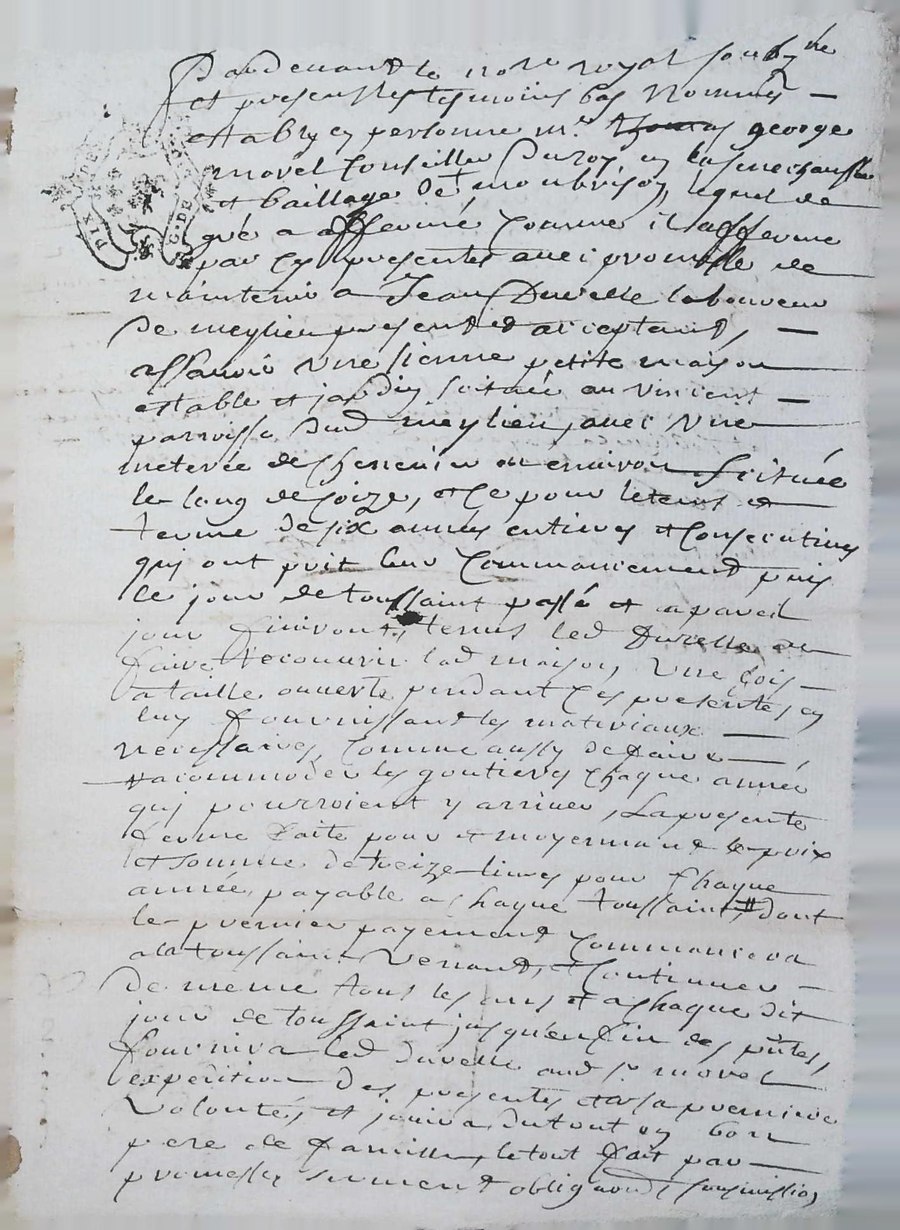 Pardevant le no.re royal soubz.né
et presents les tesmoins bas nommés
establys en personne m.r george
morel Conseiller Du roy en la marechaussée
et bailliage de montbrison, lequel de
gré a affermé comme il afferme
par ces presentes avec promesse de
maintenir a Jean Durelle laboureur
de meylieu present et acceptant,
assavoir une sienne petite maison
estable et jardin scitué au
parroisse dud. meylieu, avec une
meterée de cheneviere ou environ scituée
le long de Coize, et ce pour le tems et
terme de six années entieres et consecutives
qui ont prit leur commancement puis
le jour de toussaint passé et a pareil
jour finiront, tenus led Durelle de
faire recouvrir lad maison, une fois
a taille ouverte pendant ces presentes en
luy fournissant les materiaux
necessaires, comme aussy de faire
racommoder les goutieres chaque année
qui pourroient y arriver, La presente
ferme faite pour et moyennant le prix
et somme de treize livres pour chaque
année, payable a chaque toussaint, dont
le premier payement commancera
a la toussaint venant, et continuer
de meme tous les ans et a chaque dit
jour de toussaint jusqu'en fin des p.ntes,
fournira led durelle aud s.r morel
expedition des presentes et a sa premiere
volonté, et jouira du tout en bon
pere de famille, le tout fait par
promesses serment obligations soumissions
DIX
G. DE